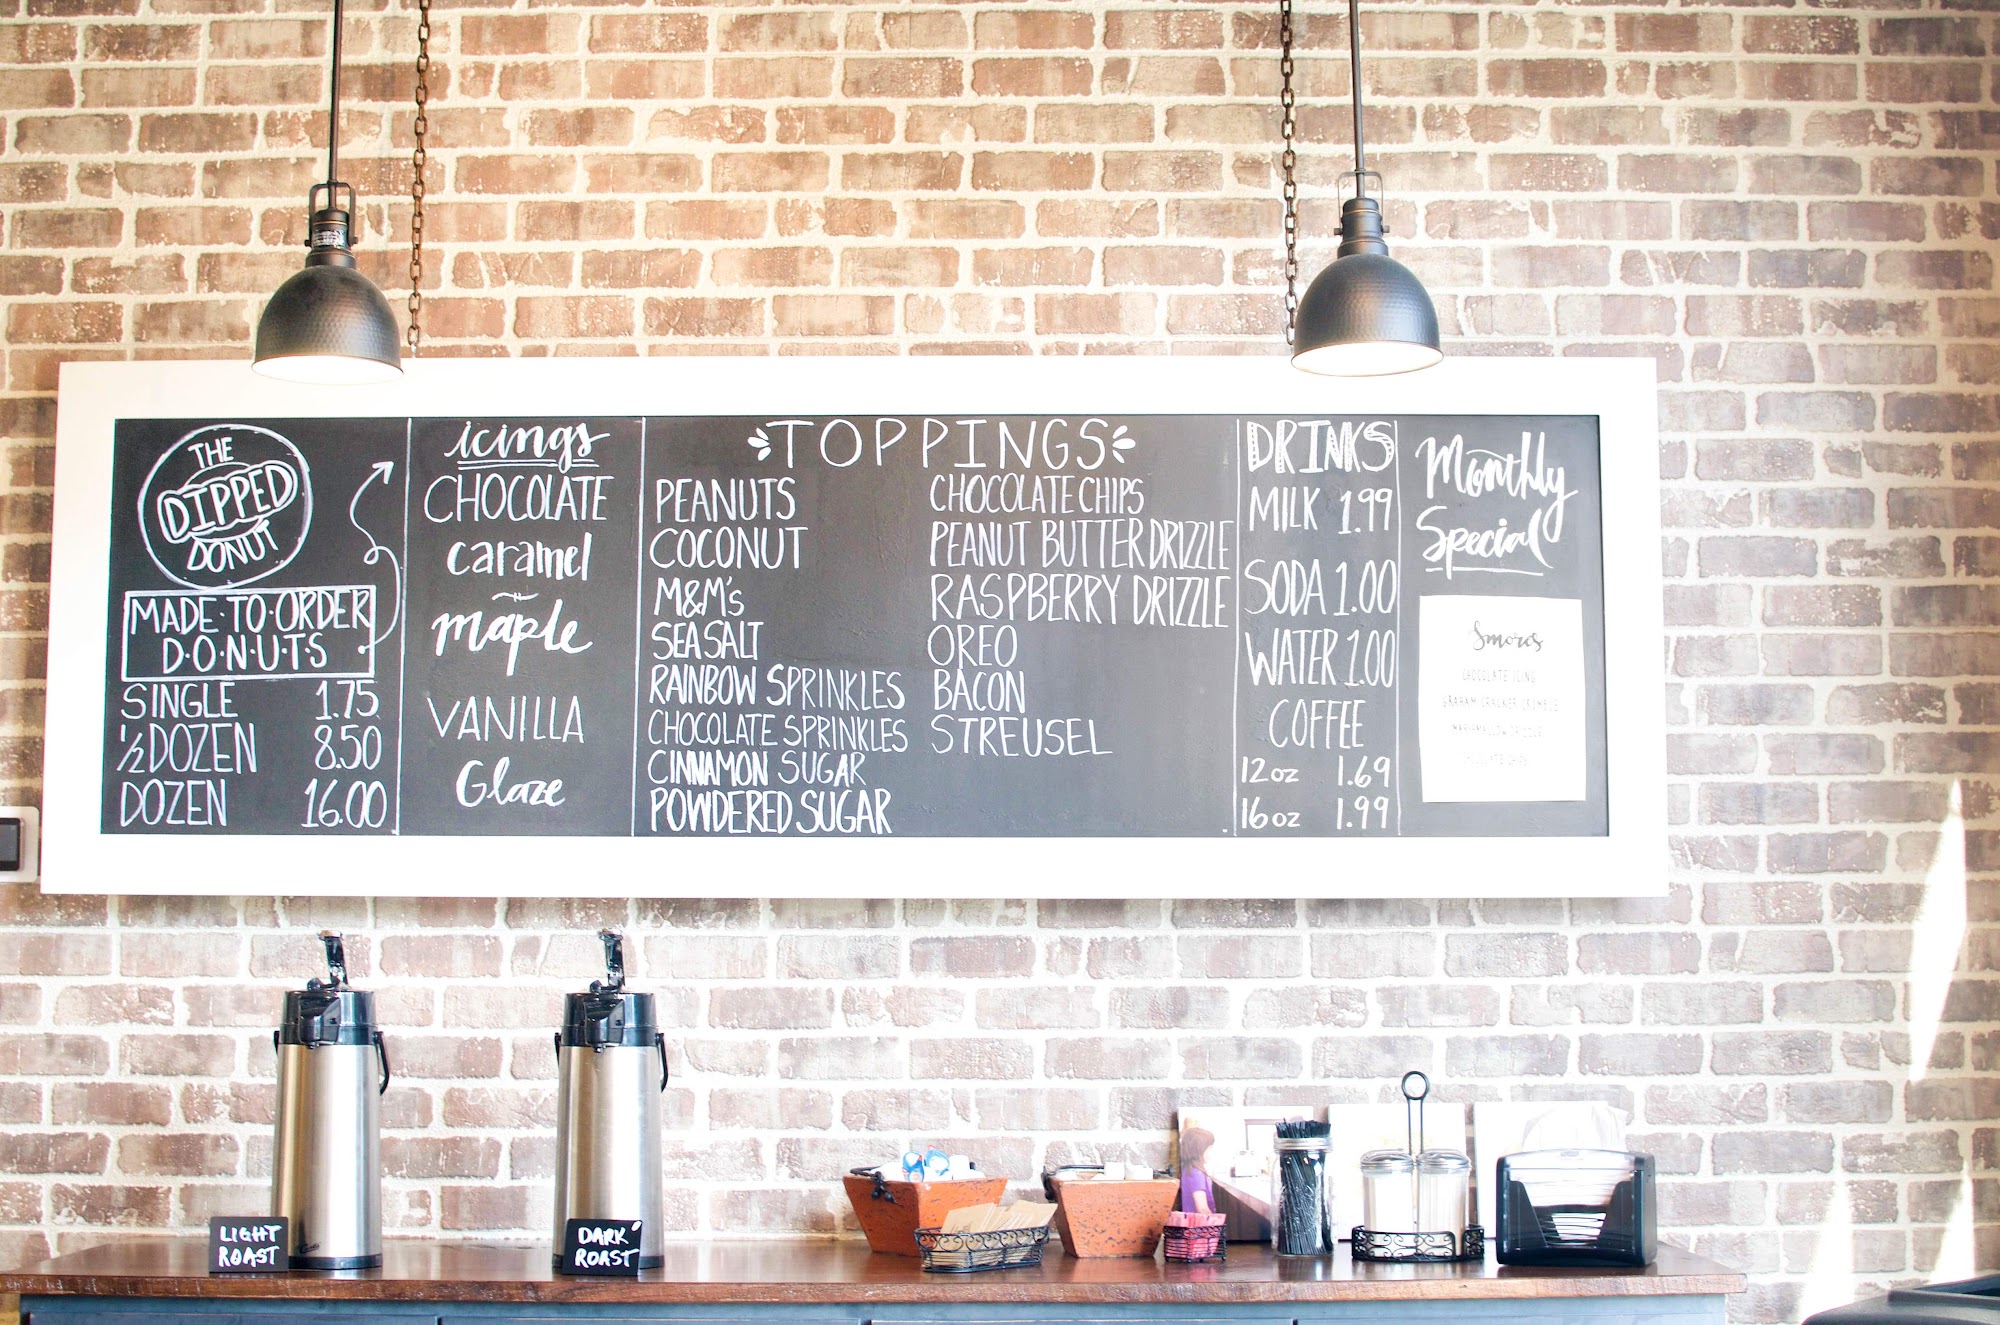 THE
DIPPED
DONUT
MADE·TO·ORDER
D·O·N·U·T·S
SINGLE 1.75
1/2 DOZEN 8.50
DOZEN 16.00
icings
CHOCOLATE
caramel
maple
VANILLA
Glaze
TOPPINGS
PEANUTS
COCONUT
M&M's
SEA SALT
RAINBOW SPRINKLES
CHOCOLATE SPRINKLES
CINNAMON SUGAR
POWDERED SUGAR
CHOCOLATE CHIPS
PEANUT BUTTER DRIZZLE
RASPBERRY DRIZZLE
OREO
BACON
STREUSEL
DRINKS
MILK 1.99
SODA 1.00
WATER 1.00
COFFEE
12 oz 1.69
16 oz 1.99
Monthly
Special
Smores
CHOCOLATE ICING
GRAHAM CRACKER CRUMBLE
CHOCOLATE CHIPS
LIGHT
ROAST
DARK
ROAST